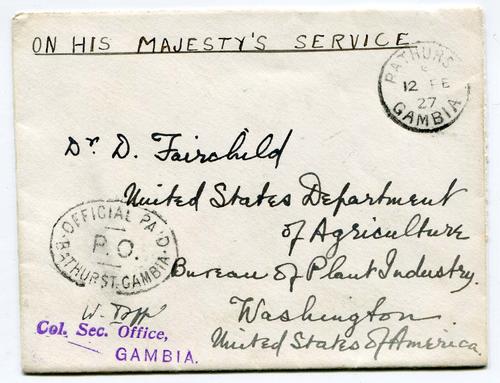 ON HIS MAJESTY'S SERVICE
BATHURST
12 FE
27
GAMBIA
Dr. D. Fairchild
United States Department
of Agriculture
Bureau of Plant Industry.
Washington
United States of America
OFFICIAL PAID
P.O.
BATHURST. GAMBIA
Col. Sec. Office,
GAMBIA.